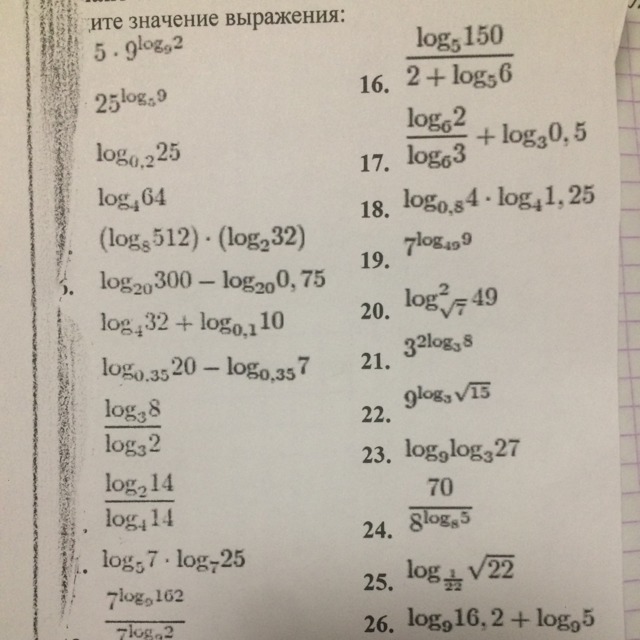 ите значение выражения:
5 · 9^{log_9 2}
25^{log_5 9}
log_{0,2}25
log_4 64
(log_8 512) · (log_2 32)
log_{20}300 − log_{20}0,75
log_4 32 + log_{0,1}10
log_{0.35}20 − log_{0,35}7
log_3 8 / log_3 2
log_2 14 / log_4 14
log_5 7 · log_7 25
7^{log_9 162} / 7^{log_9 2}
16. log_5 150 / (2 + log_5 6)
17. log_6 2 / log_6 3 + log_3 0,5
18. log_{0,8}4 · log_4 1,25
19. 7^{log_{49} 9}
20. log^2_{√7} 49
21. 3^{2log_3 8}
22. 9^{log_3 √15}
23. log_9 log_3 27
24. 70 / 8^{log_8 5}
25. log_{1/22} √22
26. log_9 16,2 + log_9 5